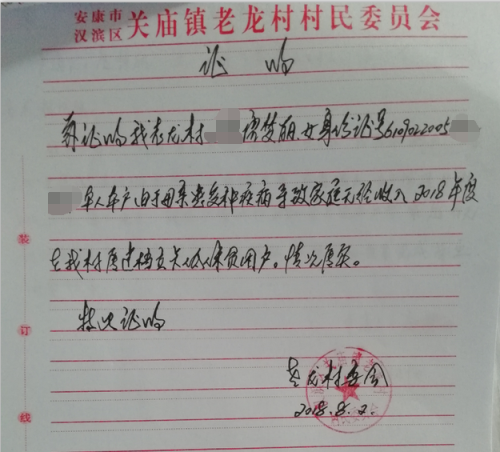 安康市
汉滨区 关庙镇老龙村村民委员会
证明
兹证明我老龙村 梦丽,女身份证号6109022005
单人单户由于母亲患多种疾病导致家庭无经收入2018年度
在我村属建档立卡 贫困户。情况属实。
特此证明
老龙村委会
2018.8.2.
装
订
线